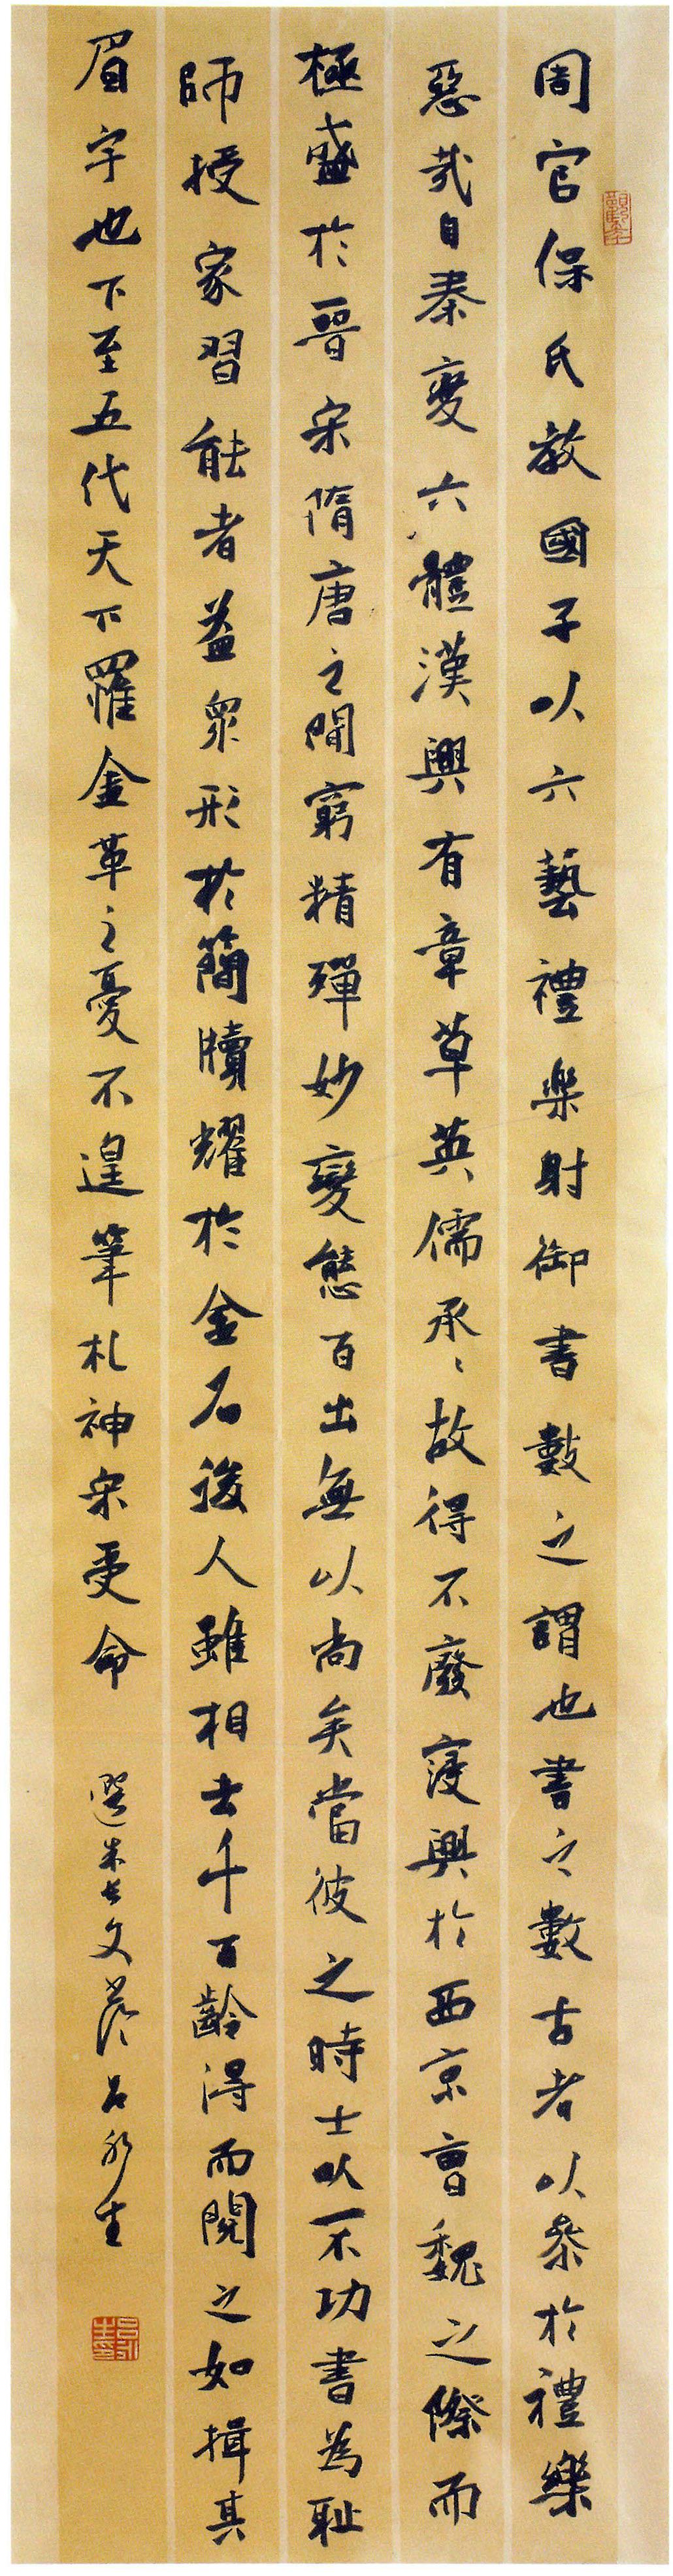 周官保氏教國子以六藝禮樂射御書數之謂也書之數古者以參於禮樂
惡哉自秦變六體漢興有章草英儒承〻故得不廢寖興於西京曹魏之際而
極盛於晉宋隋唐之間窮精殫妙變態百出無以尚矣當彼之時士以不功書為耻
師授家習能者益衆形於簡牘耀於金石後人雖相去千百齡得而閱之如揖其
眉宇也下至五代天下罹金革之憂不遑筆札神宋受命
選朱長文論 呂永生